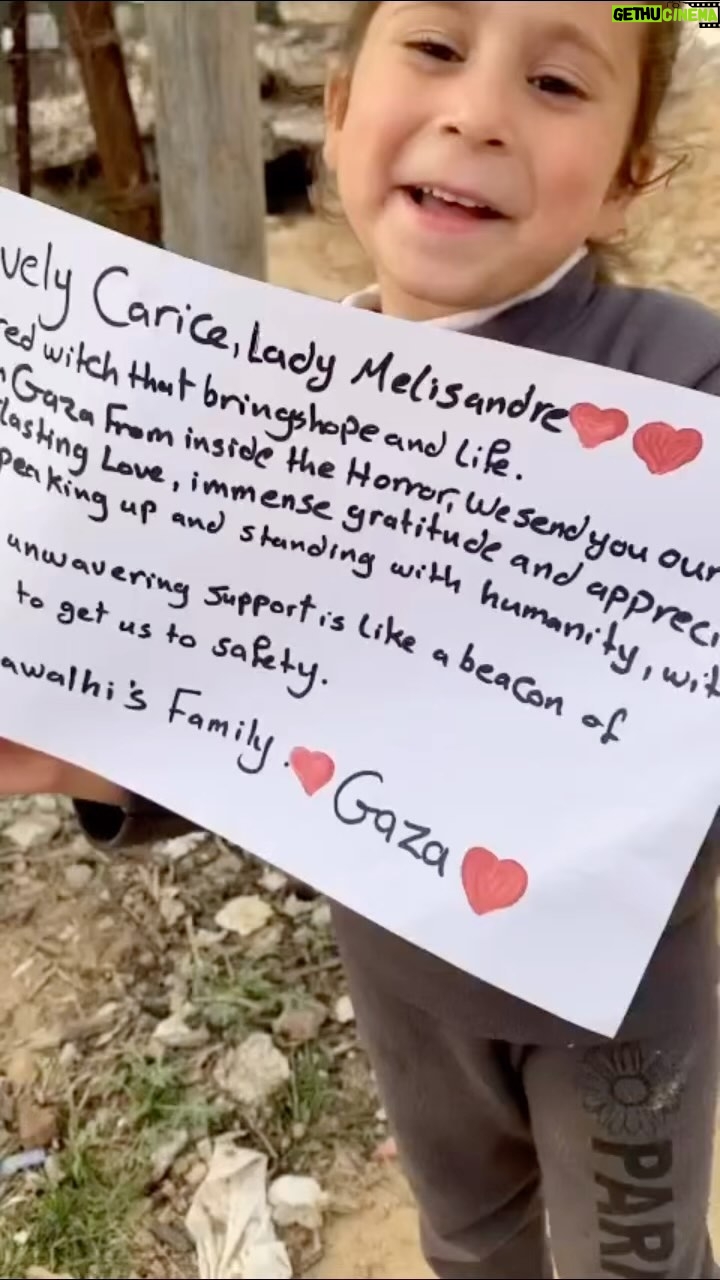 GETHUCINEMA
vely Carice, Lady Melisandre
red witch that brings hope and life.
Gaza From inside the Horror, We send you our
lasting Love, immense gratitude and appreci
peaking up and standing with humanity, wit
unwavering support is like a beacon of
to get us to safety.
awalhi's Family.
Gaza
PAR